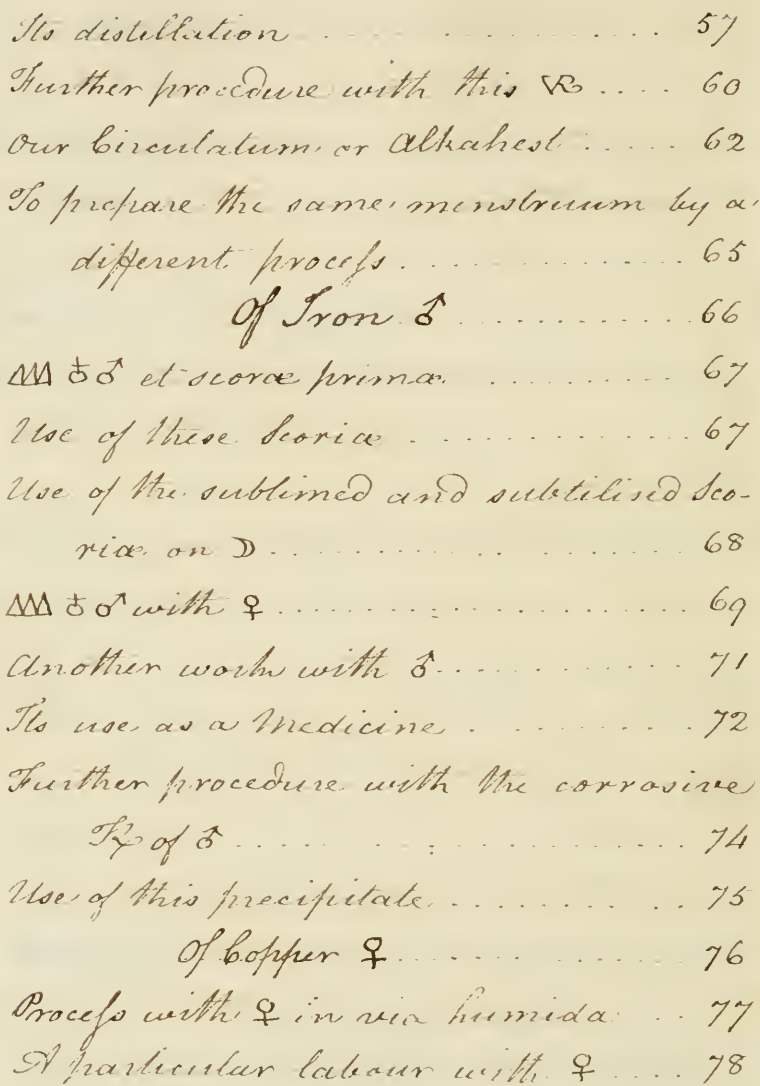 Its distillation . . . . . . . . . . 57
Further procedure with this . . . . 60
Our Circulatum or Alkahest . . . . . 62
To prepare the same menstruum by a
different process . . . . . . . . . . 65
Of Iron ♂ . . . . . . . . . . 66
♁ ♂ et scoræ prima . . . . . . . . 67
Use of these Scoriæ . . . . . . . . . 67
Use of the sublimed and subtilised Sco-
riæ on ☽ . . . . . . . . . . 68
♁ ♂ with ♀ . . . . . . . . . . 69
Another work with ♂ . . . . . . . . . 71
Its use as a Medicine . . . . . . . . 72
Further procedure with the corrosive
of ♂ . . . . . . . . . . 74
Use of this precipitate . . . . . . . . 75
Of Copper ♀ . . . . . . . . . 76
Process with ♀ in via humida . . 77
A particular labour with ♀ . . . . 78